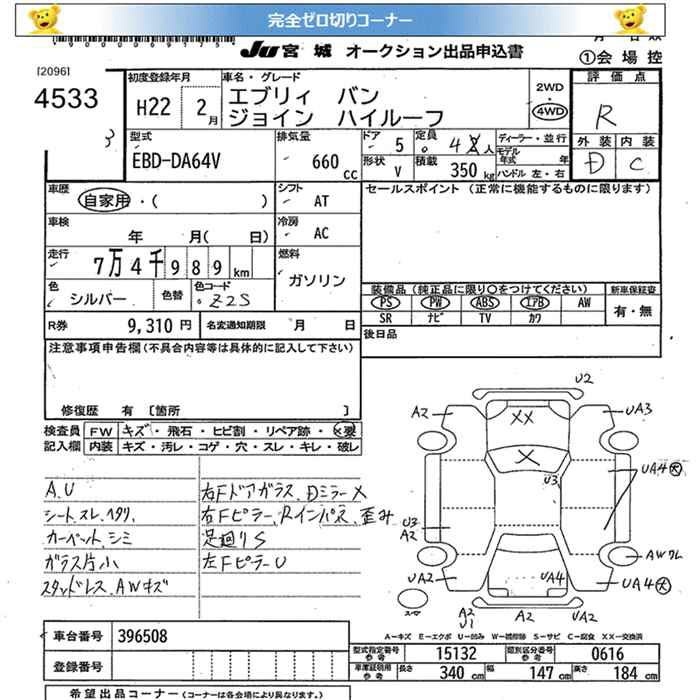 完全ゼロ切りコーナー
JU 宮城 オークション出品申込書
①会場控
[2096]
4533
初度登録年月
H22 2月
車名・グレード
エブリィ バン
ジョイン ハイルーフ
2WD
4WD
評価点
R
外装 内装
D C
型式
EBD-DA64V
排気量
660 cc
ドア
5
定員
4人
ディーラー・並行
モデル年式 年
ハンドル 左・右
形状
V
積載
350 kg
車歴
自家用・( )
シフト
AT
セールスポイント (正常に機能するものに限ります)
車検
年 月( 日)
冷房
AC
走行
7万4千989km
燃料
ガソリン
色
シルバー
色替
色コード
Z2S
装備品(純正品に限り○をつけてください)
PS PW ABS エアB AW
SR ナビ TV カワ
新車保証書
有・無
R券 9,310円
名変通知期限 月 日
後日品
注意事項申告欄(不具合内容等は具体的に記入して下さい)
修復歴 有 [箇所 ]
検査員
記入欄
FW キズ・飛石・ヒビ割・リペア跡・X要
内装 キズ・汚レ・コゲ・穴・スレ・キレ・破レ
A.U
シート、スレ、ヘタリ、
カーペット、シミ
ガラス片小
スタッドレス、AWキズ
右FドアガラスDミラーX
右Fピラー、Rインパネ、歪み
足廻りS
左FピラーU
U2
A2
XX
UA3
X
U3
UA4大
U3
A2
AWクレ
UA2
UA4
UA4大
スマ
A2
U1
A2
UA2
A―キズ E―エクボ U―凹み W―補修跡 S―サビ C―腐食 XX―交換済
車台番号 396508
登録番号
型式指定番号 参考 15132
類別区分番号 参考 0616
車庫証明用 参考 長さ 340 cm 幅 147 cm 高さ 184 cm
希望出品コーナー(コーナーは各会場により異なります。)